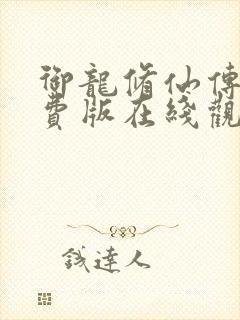 御龍脩仙傳
費版在綫觀
錢達人